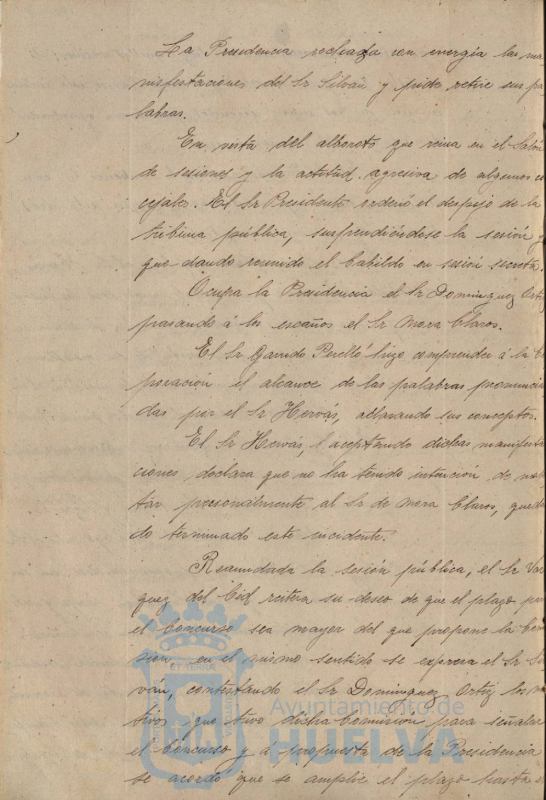 La Presidencia rechaza con energía las ma
nifestaciones del Sr Silván y pide retire sus pa
labras.
En vista del alboroto que reina en el Salón
de sesiones y la actitud agresiva de algunos con
cejales. El Sr Presidente ordenó el despejo de la
tribuna pública, suspendiéndose la sesión y
quedando reunido el Cabildo en sesión secreta.
Ocupa la Presidencia el Sr Dominguez Ortiz
pasando á los escaños el Sr Mora Claros.
El Sr Garrido Perelló hizo comprender á la Cor
poración el alcance de las palabras pronuncia
das por el Sr Hervás, aclarando sus conceptos.
El Sr Hervás, aceptando dichas manifesta
ciones declara que no ha tenido intención de moles
tar personalmente al Sr de Mora Claros, quedan
do terminado este incidente.
Reanudada la sesión pública, el Sr Vaz
quez del Cid reitera su deseo de que el plazo para
el Concurso sea mayor del que propone la Comi
sión en el mismo sentido se expresa el Sr Sil
ván, contestando el Sr Dominguez Ortiz los mo
tivos que tuvo dicha Comisión para señalar
el Concurso y á propuesta de la Presidencia
se acordó que se amplíe el plazo hasta
Ayuntamiento de
HUELVA